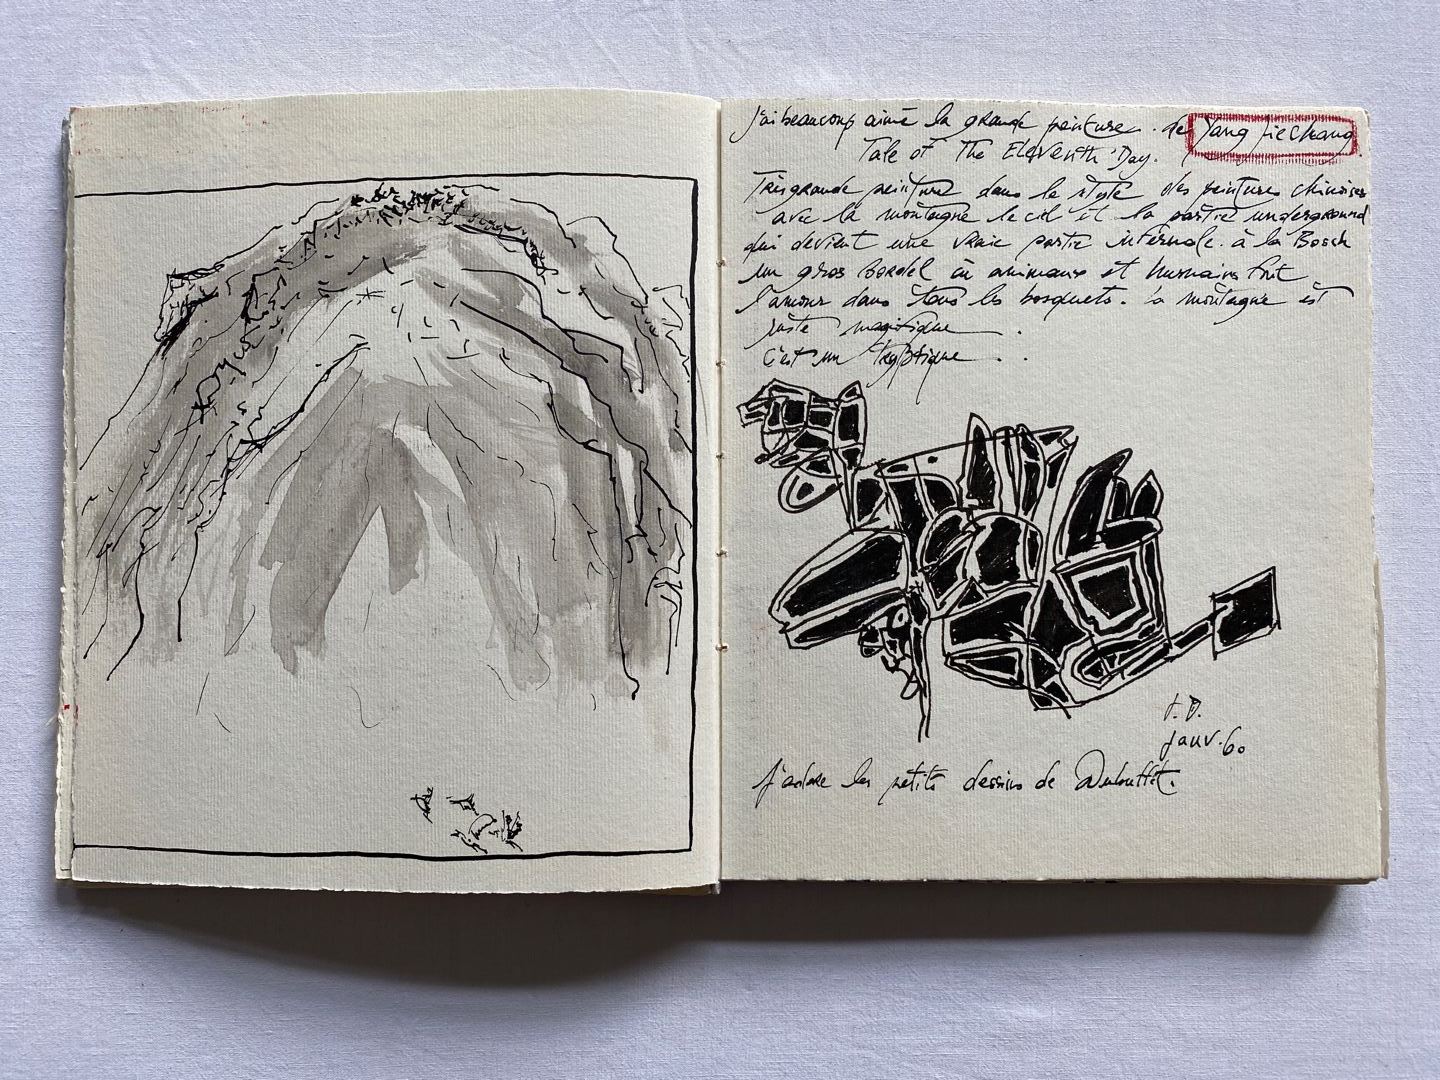 J'ai beaucoup aimé la grande peinture de Yang Jiechang
Tale of The Eleventh Day.
Très grande peinture dans le style des peintures chinoises
avec la montagne le ciel et la partie underground
qui devient une vraie partie infernale. à la Bosch
un gros Bordel où animaux et humains font
l'amour dans tous les bosquets. La montagne est
juste magnifique
C'est un tryptique
J.D.
janv. 60
J'adore les petits dessins de Dubuffet.